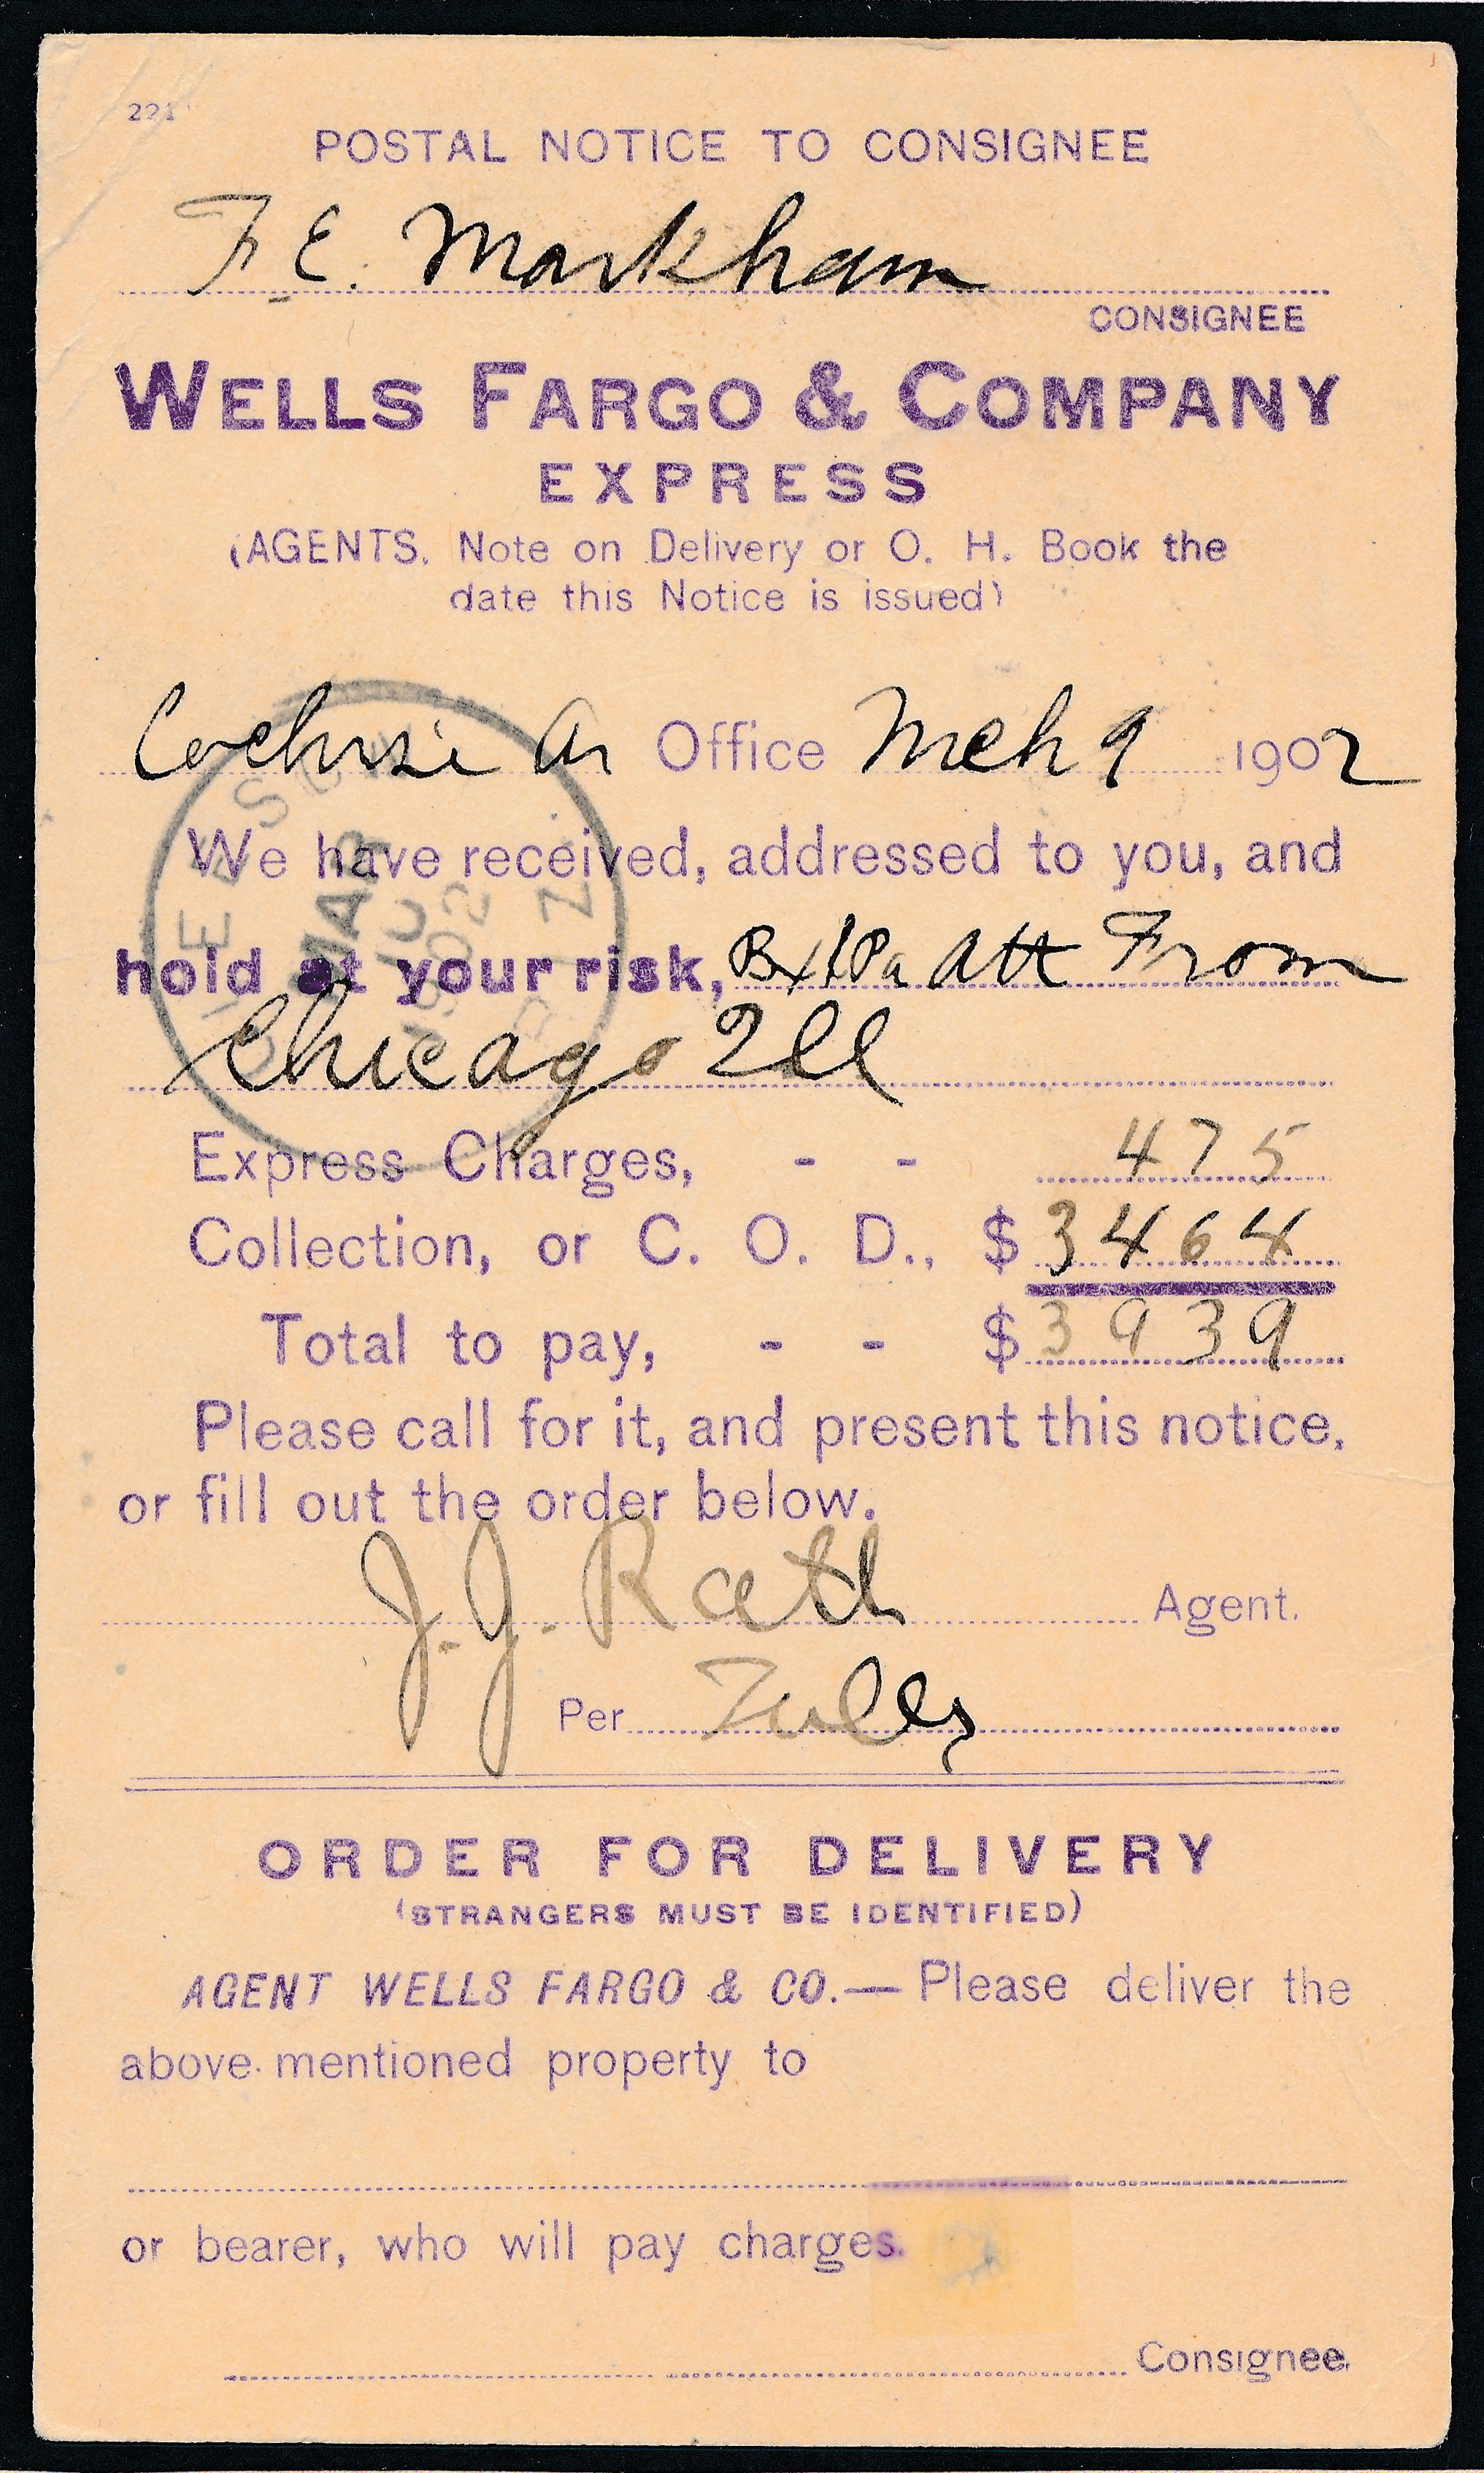 221
POSTAL NOTICE TO CONSIGNEE
F. E. Markham
CONSIGNEE
WELLS FARGO & COMPANY
EXPRESS
(AGENTS. Note on Delivery or O. H. Book the
date this Notice is issued)
Cochise Ar Office Mch 9 1902
We have received, addressed to you, and
hold at your risk, Bx Att From
Chicago Ill
Express Charges, - - 475
Collection, or C. O. D., $ 3464
Total to pay, - - $ 3939
Please call for it, and present this notice,
or fill out the order below.
J. J. Rath Agent.
Per Tully
ORDER FOR DELIVERY
(STRANGERS MUST BE IDENTIFIED)
AGENT WELLS FARGO & CO.— Please deliver the
above mentioned property to
or bearer, who will pay charges.
Consignee.
MAR